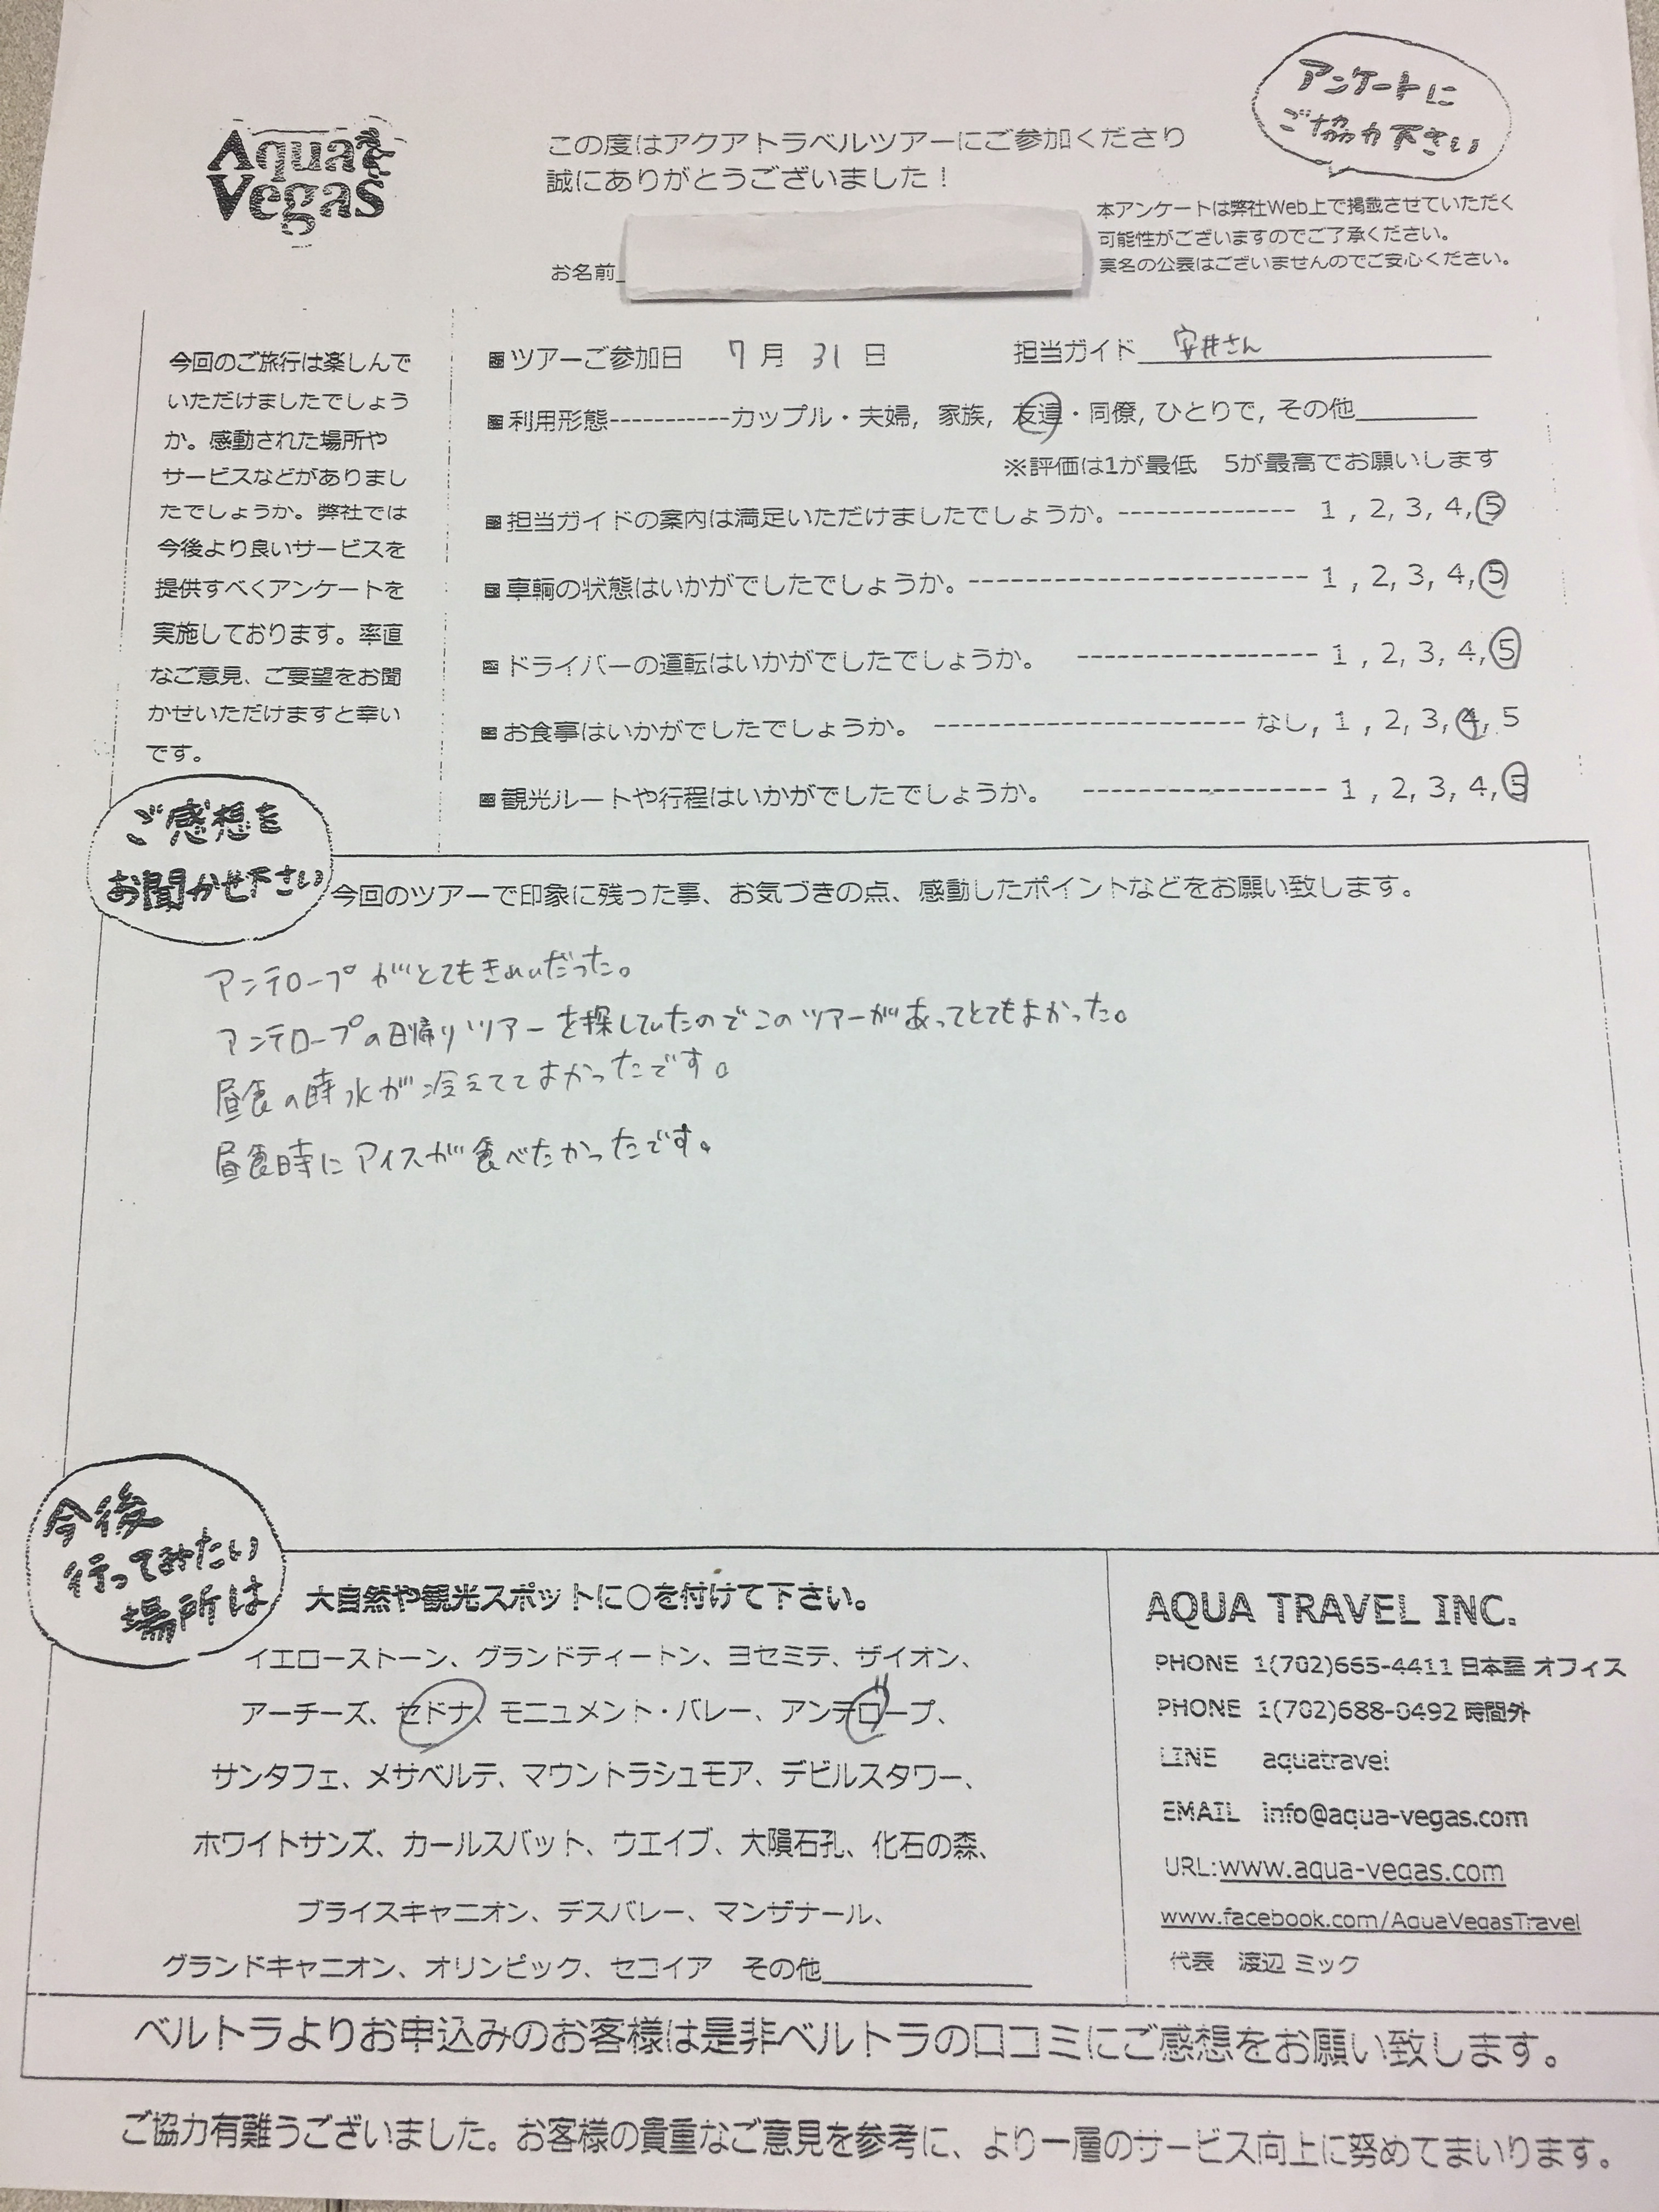 Aqua
Vegas
この度はアクアトラベルツアーにご参加くださり
誠にありがとうございました！
アンケートに
ご協力下さい
本アンケートは弊社Web上で掲載させていただく
可能性がございますのでご了承ください。
実名の公表はございませんのでご安心ください。
お名前
今回のご旅行は楽しんで
いただけましたでしょう
か。感動された場所や
サービスなどがありまし
たでしょうか。弊社では
今後より良いサービスを
提供すべくアンケートを
実施しております。率直
なご意見、ご要望をお聞
かせいただけますと幸い
です。
■ツアーご参加日 7月 31日 担当ガイド 安井さん
■利用形態-----------カップル・夫婦, 家族, 友達・同僚, ひとりで, その他
※評価は1が最低 5が最高でお願いします
■担当ガイドの案内は満足いただけましたでしょうか。-------------- 1 , 2, 3, 4, 5
■車輌の状態はいかがでしたでしょうか。--------------------------- 1 , 2, 3, 4, 5
■ドライバーの運転はいかがでしたでしょうか。 ------------------- 1 , 2, 3, 4, 5
■お食事はいかがでしたでしょうか。 ------------------------- なし, 1 , 2, 3, 4, 5
■観光ルートや行程はいかがでしたでしょうか。 ------------------- 1 , 2, 3, 4, 5
ご感想を
お聞かせ下さい
今回のツアーで印象に残った事、お気づきの点、感動したポイントなどをお願い致します。
アンテロープがとてもきれいだった。
アンテロープの日帰りツアーを探していたのでこのツアーがあってとてもよかった。
昼食の時水が冷えててよかったです。
昼食時にアイスが食べたかったです。
今後
行ってみたい
場所は
大自然や観光スポットに○を付けて下さい。
イエローストーン、グランドティートン、ヨセミテ、ザイオン、
アーチーズ、セドナ、モニュメント・バレー、アンテロープ、
サンタフェ、メサベルテ、マウントラシュモア、デビルスタワー、
ホワイトサンズ、カールスバット、ウエイブ、大隕石孔、化石の森、
ブライスキャニオン、デスバレー、マンザナール、
グランドキャニオン、オリンピック、セコイア その他
AQUA TRAVEL INC.
PHONE 1(702)665-4411 日本語 オフィス
PHONE 1(702)688-0492 時間外
LINE aquatravel
EMAIL info@aqua-vegas.com
URL:www.aqua-vegas.com
www.facebook.com/AquaVegasTravel
代表 渡辺 ミック
ベルトラよりお申込みのお客様は是非ベルトラの口コミにご感想をお願い致します。
ご協力有難うございました。お客様の貴重なご意見を参考に、より一層のサービス向上に努めてまいります。